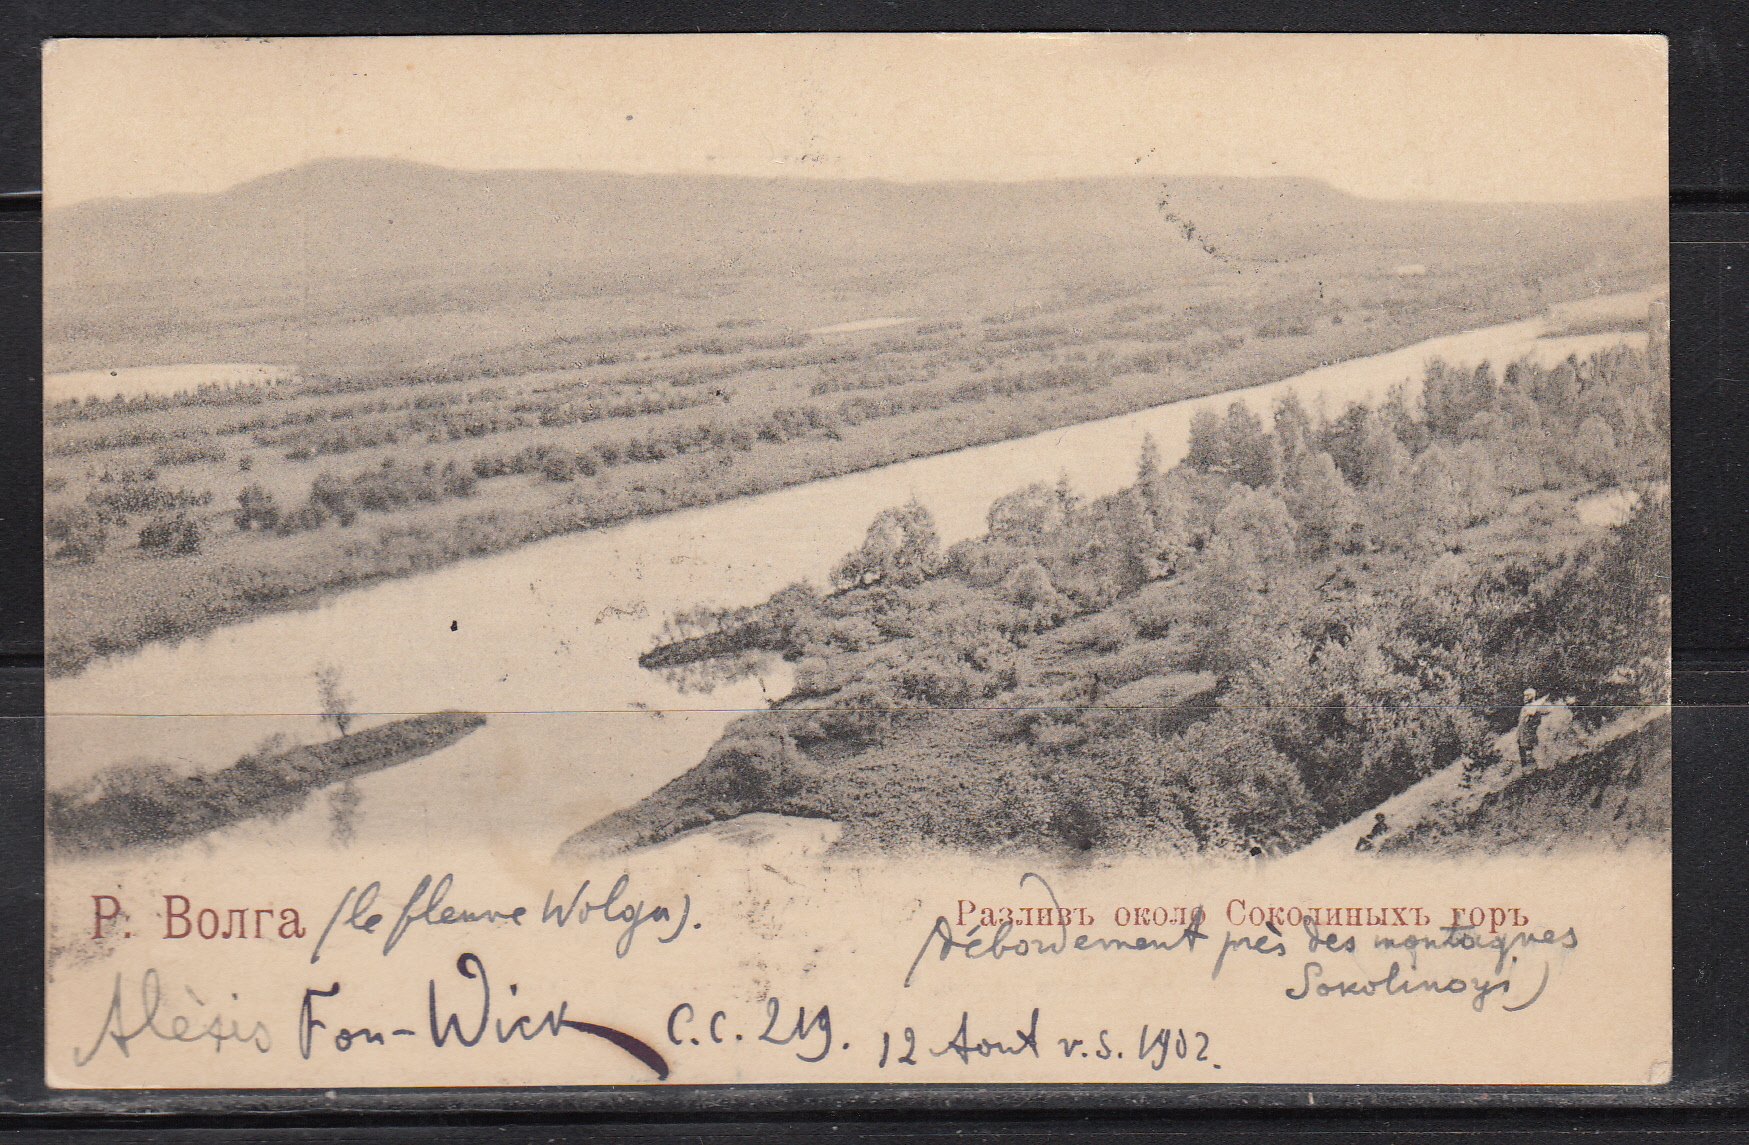 Р. Волга (le fleuve Wolga).
Разливъ около Соколиныхъ горъ
(débordement près des montagnes
Sokolinoyi)
Alèxis Fon-Wick C.C. 219. 12 Aout v.s. 1902.